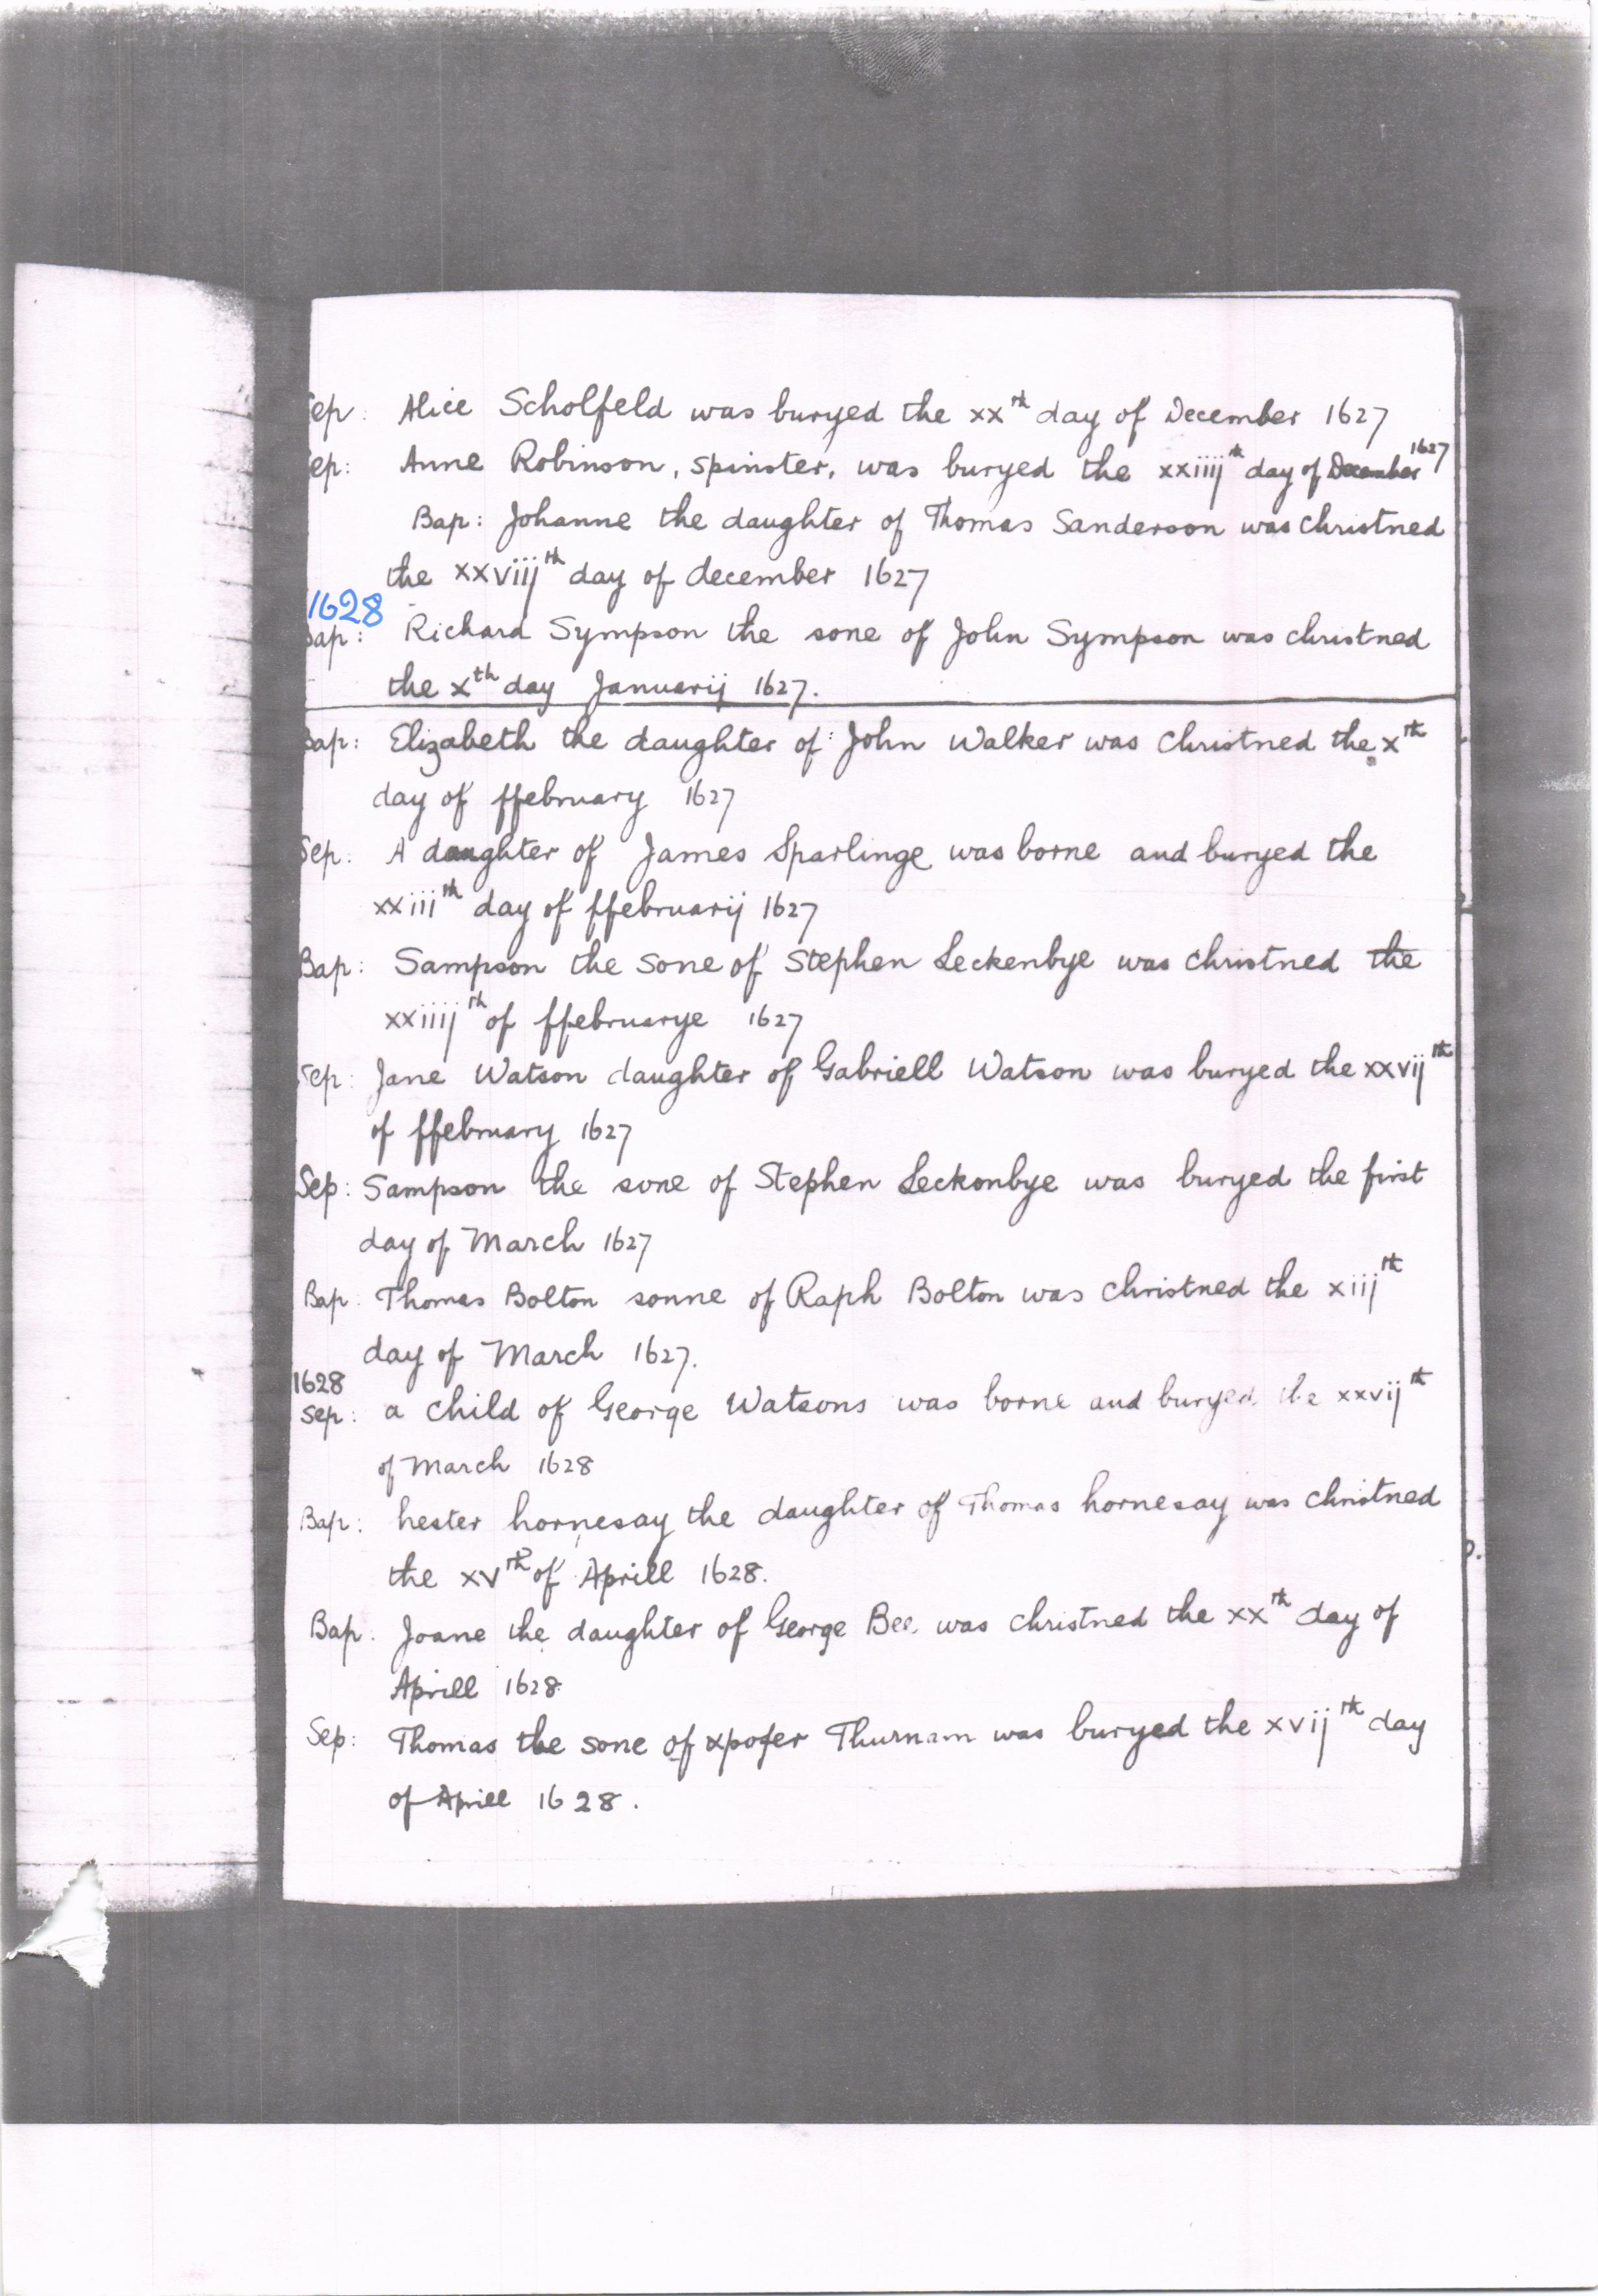 Sep: Alice Scholfeld was buryed the xxth day of December 1627
Sep: Anne Robinson, spinster, was buryed the xxiiijth day of December 1627
Bap: Johanne the daughter of Thomas Sanderson was christned
the xxviijth day of december 1627
1628
Bap: Richard Sympson the sone of John Sympson was christned
the xth day Januarij 1627.
Bap: Elizabeth the daughter of John Walker was christned the xth
day of ffebruary 1627
Sep: A daughter of James Sparlinge was borne and buryed the
xxiiith day of ffebruarij 1627
Bap: Sampson the sone of Stephen Leckenbye was christned the
xxiiijth of ffebruarye 1627
Sep: Jane Watson daughter of Gabriell Watson was buryed the xxvijth
of ffebruary 1627
Sep: Sampson the sone of Stephen Leckonbye was buryed the first
day of March 1627
Bap: Thomas Bolton sonne of Raph Bolton was christned the xiijth
day of March 1627.
1628
Sep: a child of George Watsons was borne and buryed the xxvijth
of March 1628
Bap: hester hornesay the daughter of Thomas hornesay was christned
the xvth of Aprill 1628.
Bap. Joane the daughter of George Bee was christned the xxth day of
Aprill 1628
Sep: Thomas the sone of xpofer Thurnam was buryed the xvijth day
of Aprill 1628.